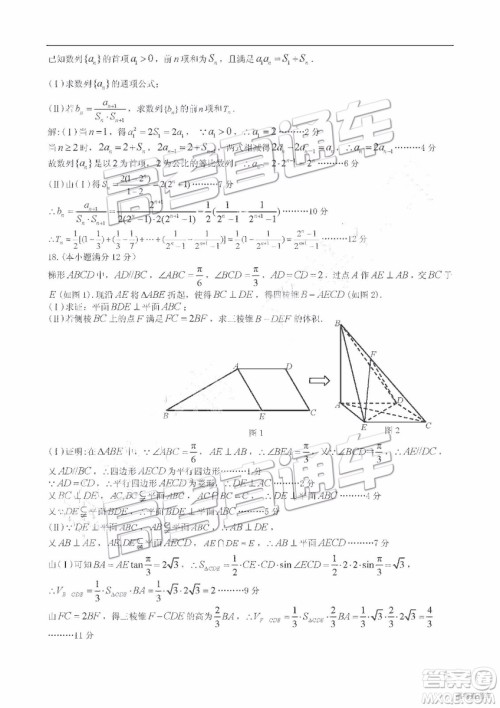 已知数列{aₙ}的首项a₁>0，前n项和为Sₙ，且满足a₁aₙ=S₁+Sₙ．
(Ⅰ)求数列{aₙ}的通项公式；
(Ⅱ)若bₙ=aₙ₊₁/(Sₙ·Sₙ₊₁)，求数列{bₙ}的前n项和Tₙ．
解：(Ⅰ)当n=1，得a₁²=2S₁=2a₁，∵a₁>0，∴a₁=2………2分
当n≥2时，2aₙ=2+Sₙ，2aₙ₋₁=2+Sₙ₋₁，两式相减得2aₙ-2aₙ₋₁=aₙ………4分
故数列{aₙ}是以2为首项，2为公比的等比数列，∴aₙ=2·2ⁿ⁻¹=2ⁿ………6分
(Ⅱ)由(Ⅰ)得Sₙ=2(1-2ⁿ)/(1-2)=2(2ⁿ-1)………7分
∴bₙ=aₙ₊₁/(Sₙ·Sₙ₊₁)=2ⁿ⁺¹/(2(2ⁿ-1)·2(2ⁿ⁺¹-1))=1/2(1/(2ⁿ-1)-1/(2ⁿ⁺¹-1))………10分
∴Tₙ=1/2[(1-1/3)+(1/3-1/7)+…+(1/(2ⁿ-1)-1/(2ⁿ⁺¹-1))]=1/2(1-1/(2ⁿ⁺¹-1))=(2ⁿ-1)/(2ⁿ⁺¹-1)………12分
18.(本小题满分12分)
梯形ABCD中，AD//BC，∠ABC=π/6，∠BCD=π/3，AD=CD=2，过点A作AE⊥AB，交BC于
E(如图1)．现沿AE将△ABE折起，使得BC⊥DE，得四棱锥B-AECD(如图2)．
(Ⅰ)求证：平面BDE⊥平面ABC；
(Ⅱ)若侧棱BC上的点F满足FC=2BF，求三棱锥B-DEF的体积．
A
D
B
E
C
图1
B
F
A
D
E
C
图2
(Ⅰ)证明：在△ABE中，∵∠ABC=π/6，AE⊥AB，∴∠BEA=π/3，
又AD//BC，∴四边形AECD为平行四边形………1分
∵AD=CD，∴平行四边形AECD为菱形，∴AC⊥DE
又BC⊥DE，
(Ⅱ)∵DE⊥平面ABC，
又AB⊥AE，AE∩DE=E，∴AB⊥平面AECD，
由(Ⅰ)知BA=AE tan π/3=2√3，∴S△CDE=1/2·CE·CD·sin∠ECD=1/2·2·2·sin π/3=√3
∴V B-CDE=1/3·S△CDE·BA=1/3·√3·2√3=2………9分
由FC=2BF，得三棱锥F-CDE的高为2/3BA，∴V F-CDE=1/3·S△CDE·2/3BA=1/3·√3·2/3·2√3=4/3
………11分
高考直通车
答案圈